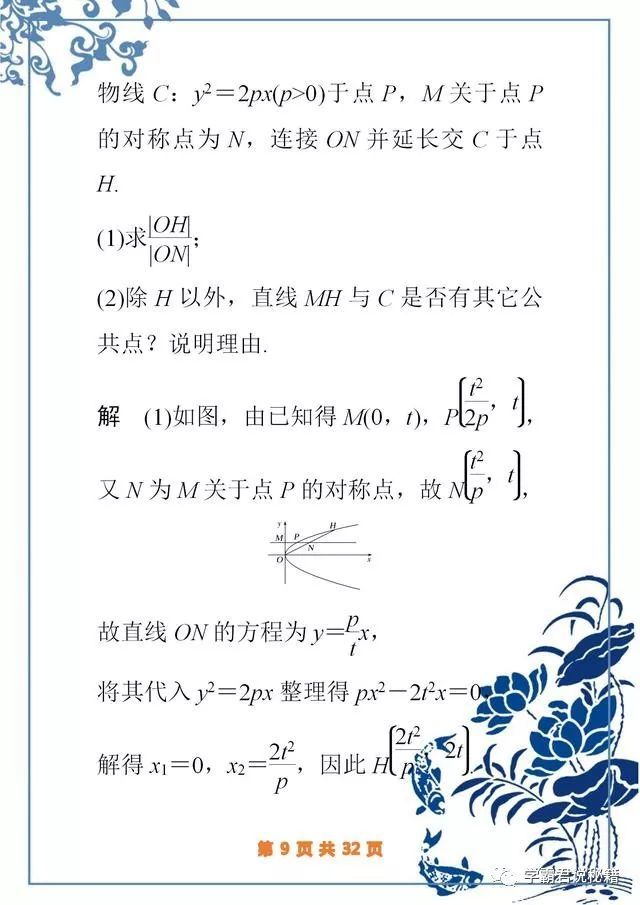 物线 C：y²＝2px(p>0)于点 P，M 关于点 P
的对称点为 N，连接 ON 并延长交 C 于点
H.
(1)求|OH|/|ON|；
(2)除 H 以外，直线 MH 与 C 是否有其它公
共点？说明理由.
解 (1)如图，由已知得 M(0，t)，P(t²/2p，t)，
又 N 为 M 关于点 P 的对称点，故 N(t²/p，t)，
y
H
M P
N
O x
故直线 ON 的方程为 y＝p/t x，
将其代入 y²＝2px 整理得 px²－2t²x＝0，
解得 x₁＝0，x₂＝2t²/p，因此 H(2t²/p，2t).
第 9 页 共 32 页
学霸君说秘籍